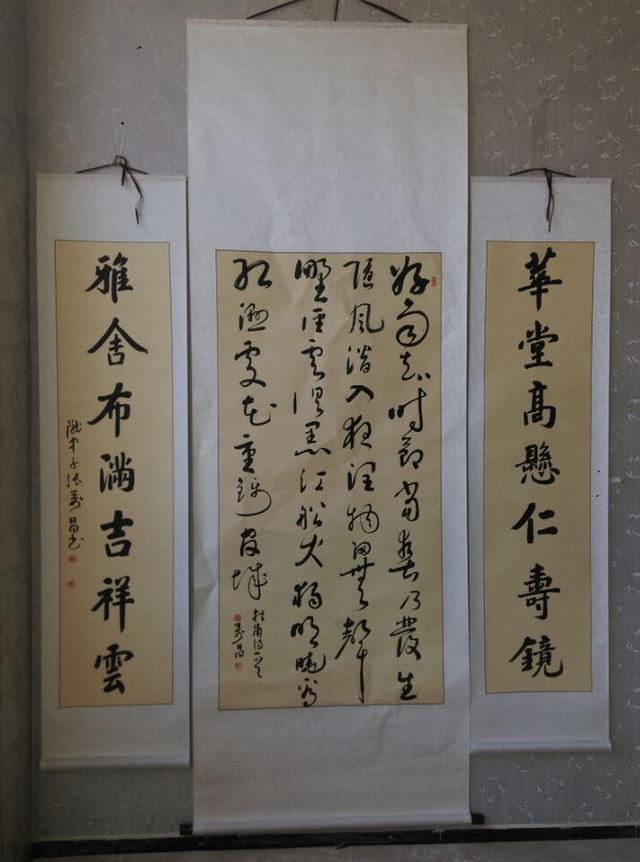 華堂高懸仁壽鏡
好雨知時節當春乃發生
隨風潛入夜潤物無聲
野徑雲俱黑江船火獨明曉看
紅濕處花重錦官城
杜甫詩一首
萬昌
雅舍布滿吉祥雲
張萬昌書